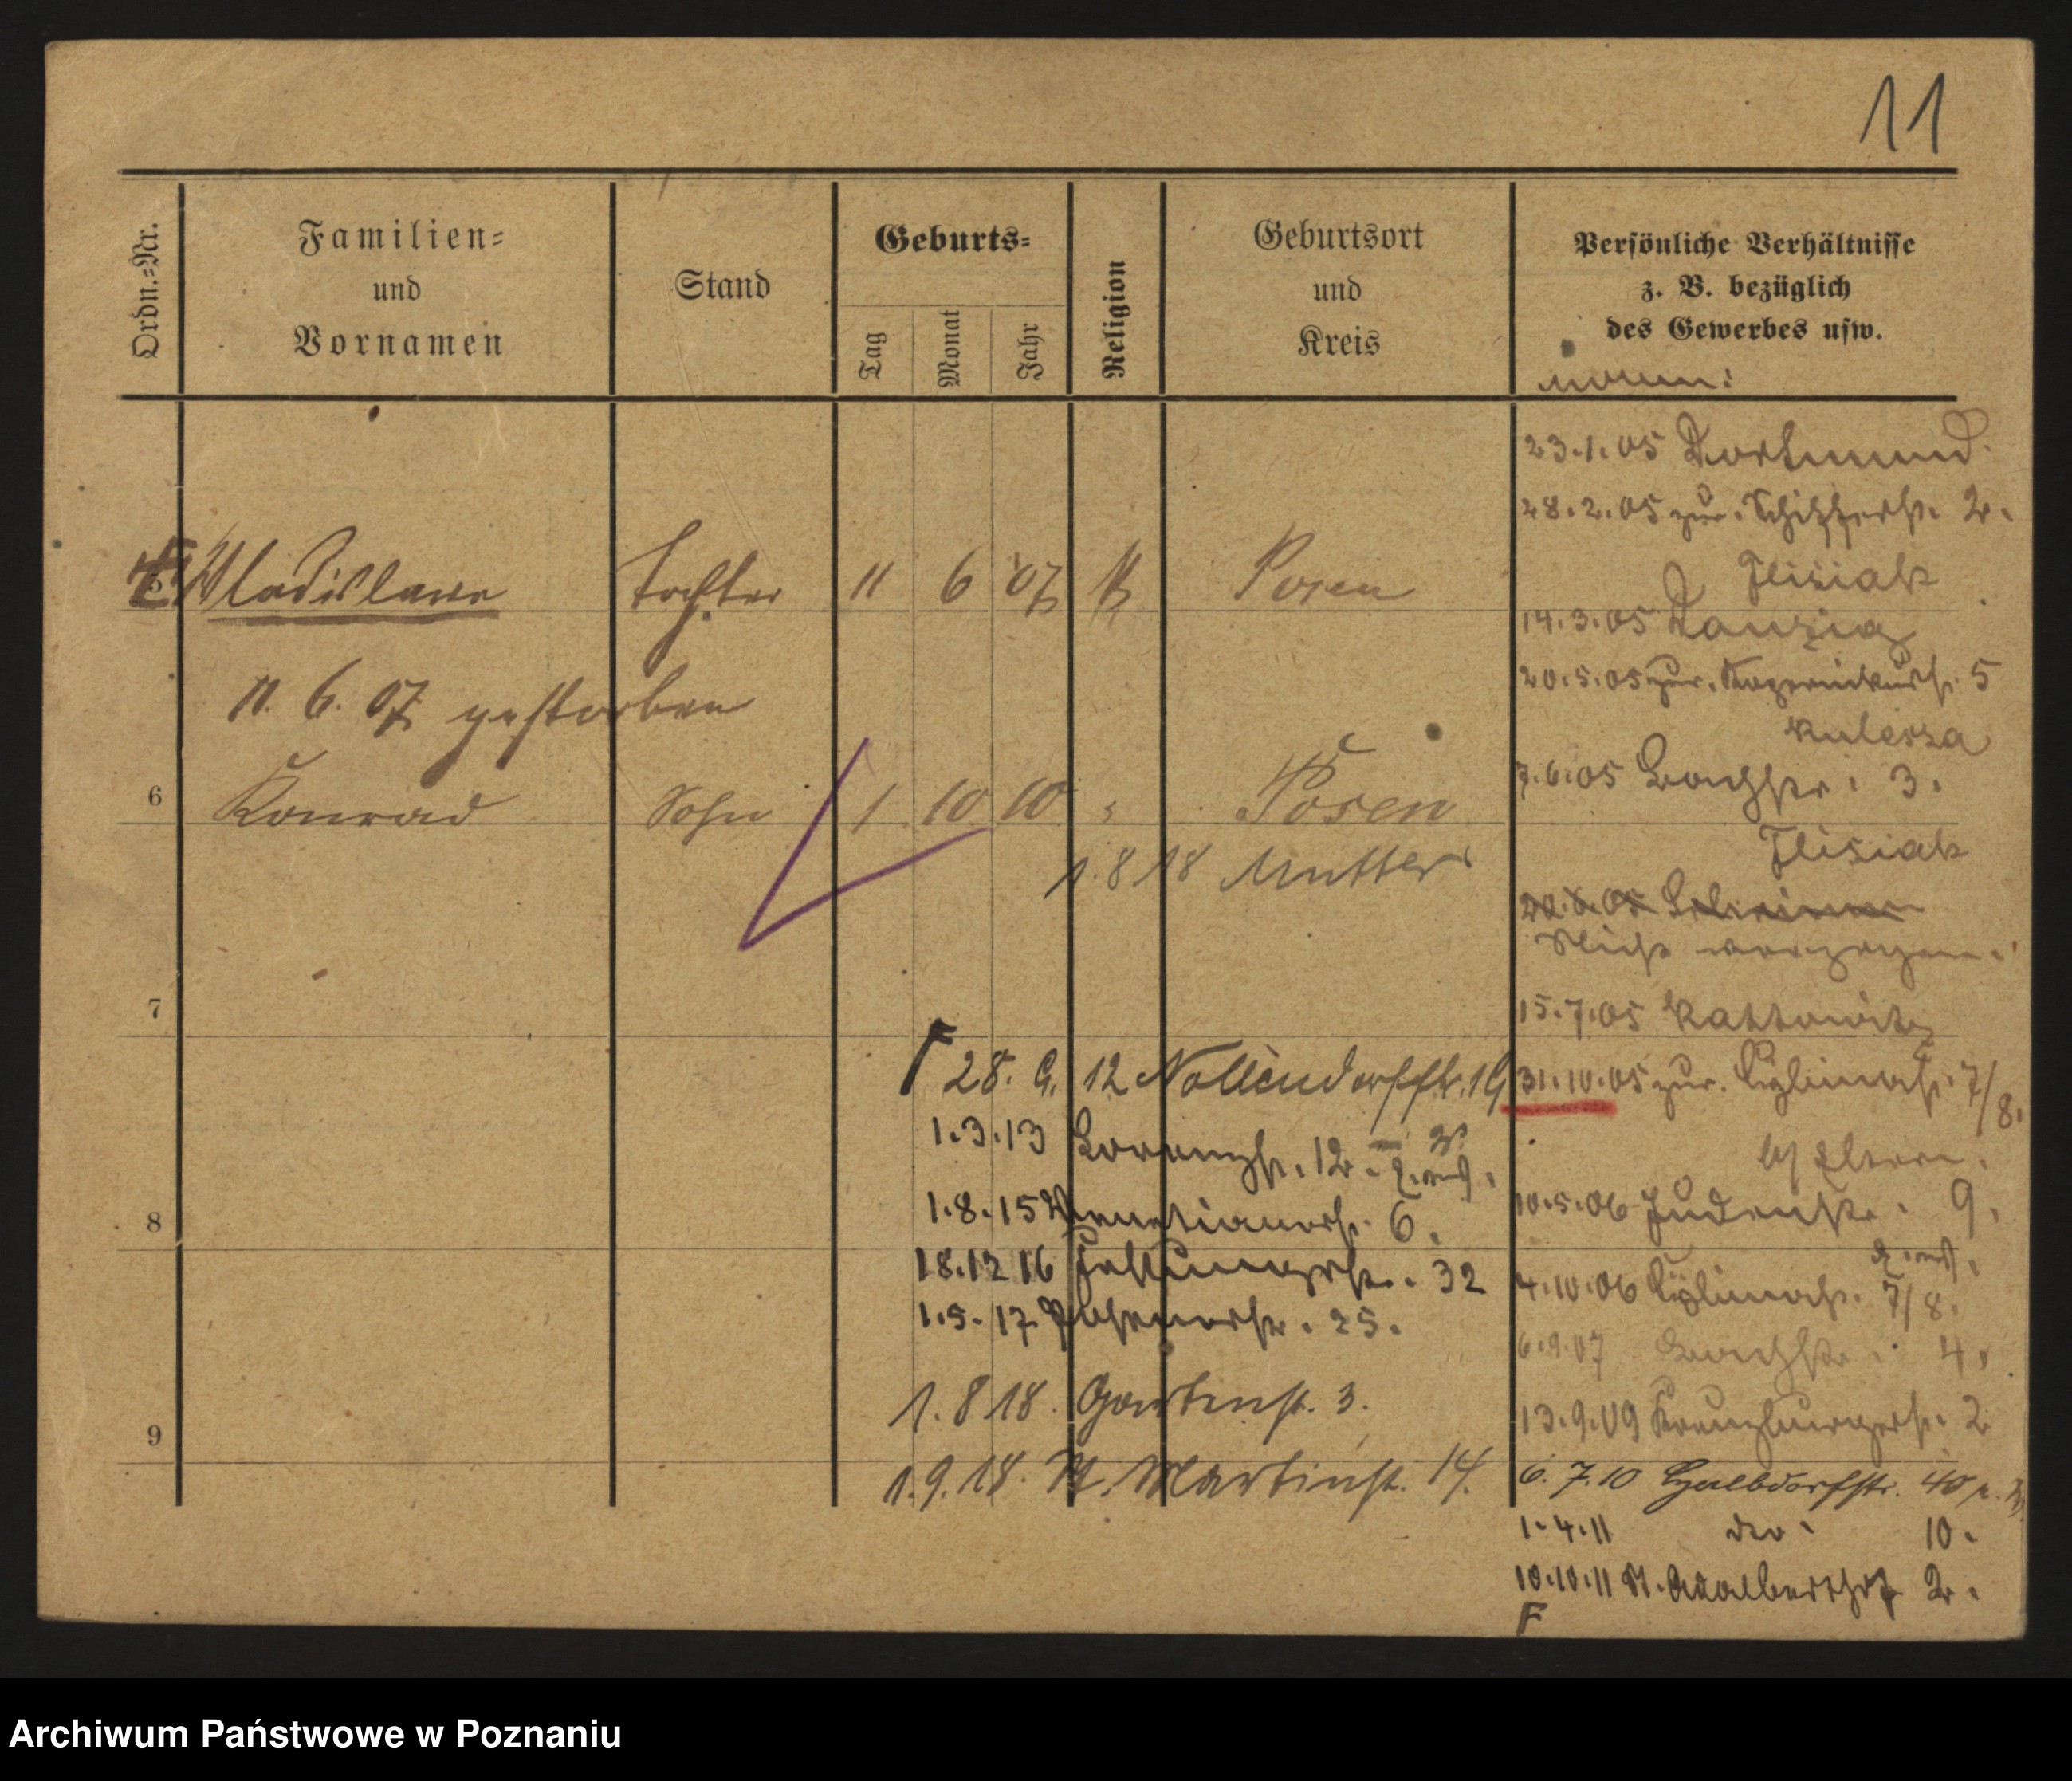 11
Ordn.-Nr.
Familien-
und
Vornamen
Stand
Geburts-
Tag
Monat
Jahr
Religion
Geburtsort
und
Kreis
Persönliche Verhältnisse
z. B. bezüglich
des Gewerbes usw.
5 Wladislawa Tochter 11 6 07 Posen
11. 6. 07 gestorben
6 Konrad Sohn 1 10 10 Posen
1. 8 18 Mutter
7
8
9
F 28. 9. 12 Nollendorfstr. 19
1.3.13 12.
1.8.15 Venetianerstr. 6.
18.12 16 Festungsstr. 32
1.5.17 Posenerstr. 25.
1. 8 18. Gartenstr. 3.
1. 9. 18. St. Martinstr. 14.
23.1.05 Dortmund
28.2.05 zur. Schifferstr. 2.
Flisiak
14.3.05 Danzig
20.5.05 zur. 5
Kulessa
7.6.05 Bachstr. 3.
Flisiak
Nicht verzogen.
15.7.05 Kattowitz
31.10.05 zur. 7/8.
b/ Eltern.
10.5.06 Judenstr. 9.
4.10.06 7/8.
6.9.07 Bachstr. 4.
13.9.09 Kreuzburgerstr. 2
6. 7. 10 Halbdorfstr. 40
1.4.11 dto. 10.
10.10.11 St. Adalbertstr. 2.
F
Archiwum Państwowe w Poznaniu